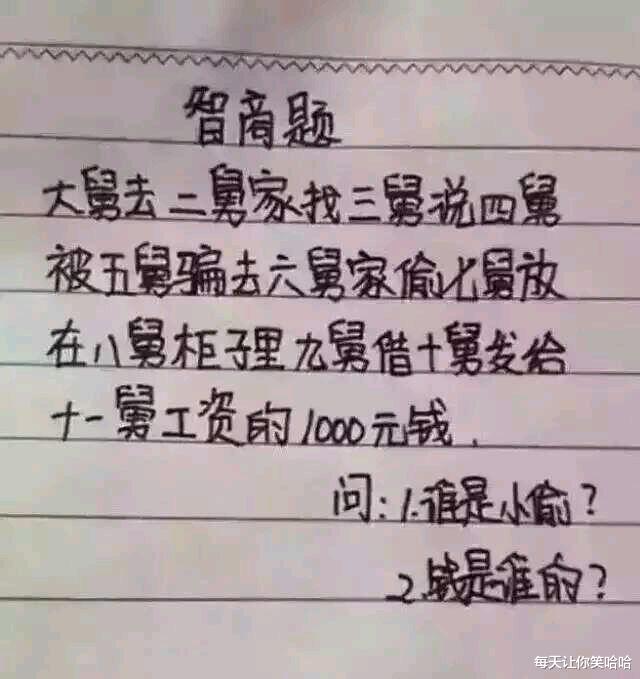 智商题
大舅去二舅家找三舅说四舅
被五舅骗去六舅家偷七舅放
在八舅柜子里九舅借十舅发给
十一舅工资的1000元钱.
问:1.谁是小偷?
2.钱是谁的?
每天让你笑哈哈